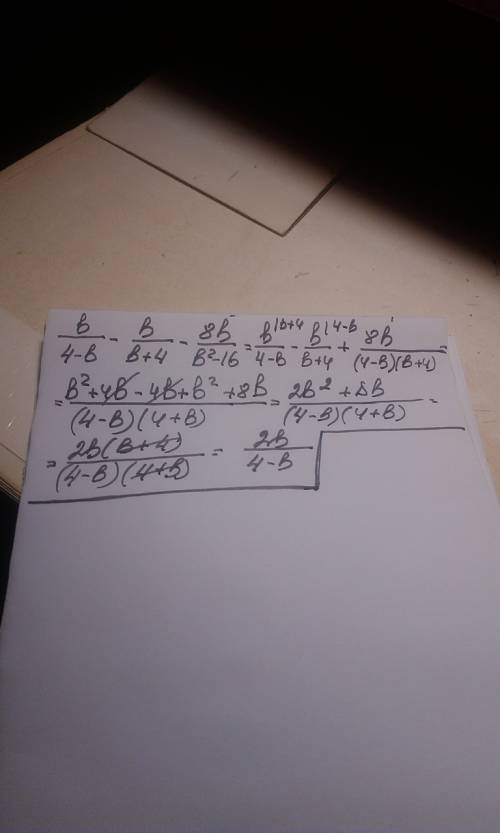 b/(4-b) - b/(b+4) - 8b/(b²-16) = b|b+4/(4-b) - b|4-b/(b+4) + 8b|1/((4-b)(b+4)) =
= (b²+4b-4b+b²+8b)/((4-b)(4+b)) = (2b²+8b)/((4-b)(4+b)) =
= 2b(b+4)/((4-b)(4+b)) = 2b/(4-b)